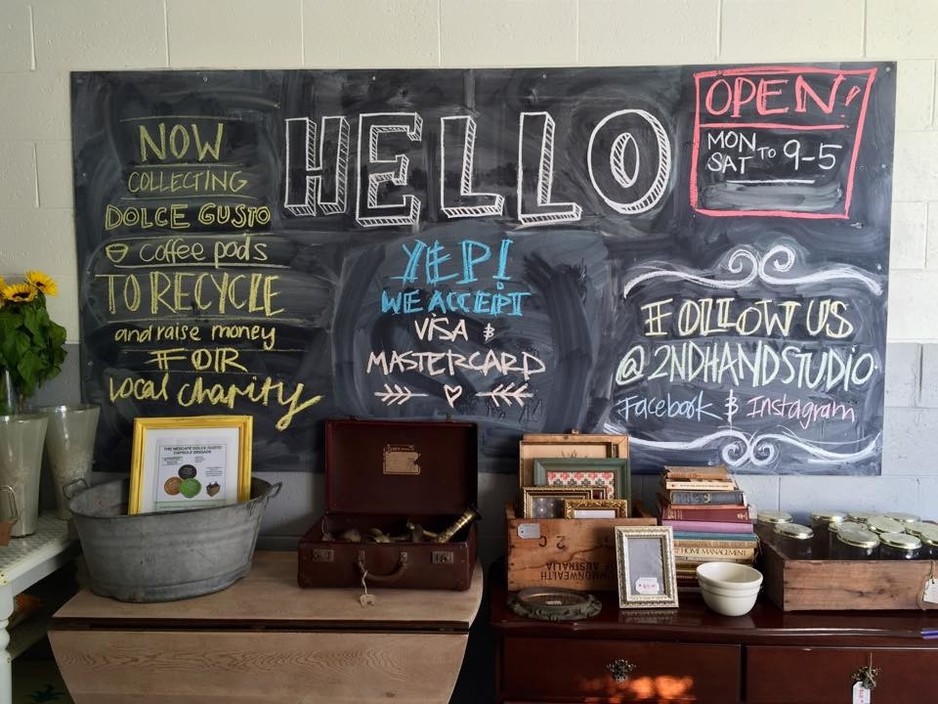 NOW
COLLECTING
DOLCE GUSTO
coffee pods
TO RECYCLE
and raise money
FOR
local charity
HELLO
YEP!
WE ACCEPT
VISA &
MASTERCARD
OPEN!
MON
SAT TO 9-5
FOLLOW US
@2NDHANDSTUDIO
Facebook & Instagram
THE NESCAFÉ DOLCE GUSTO
CAPSULE BRIGADE
2 C
COMMONWEALTH
AUSTRALIA
HOME MANAGEMENT